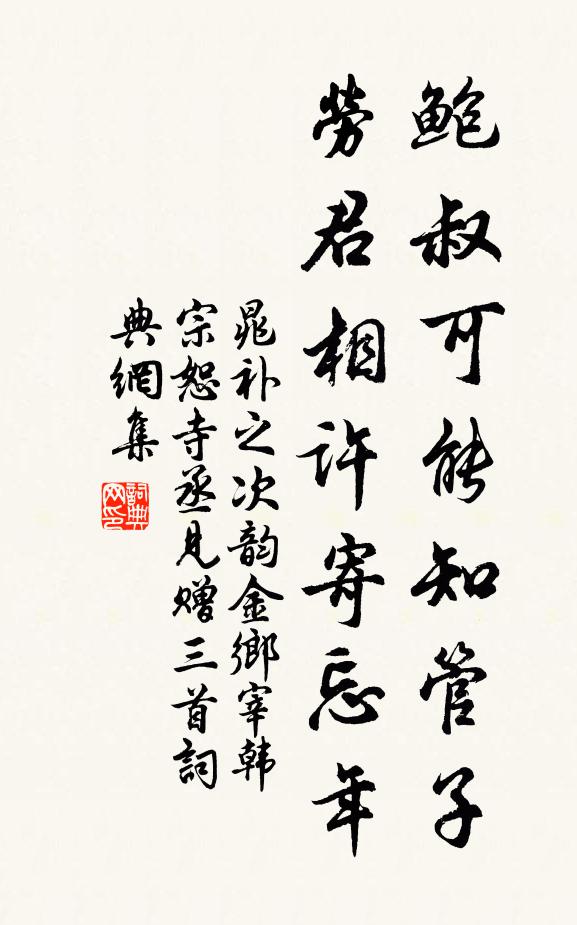 鲍叔可能知管子
勞君相許寄忘年
晁补之次韵金鄉宰韩
宗恕寺丞見赠三首詞
典網集
詞典网印